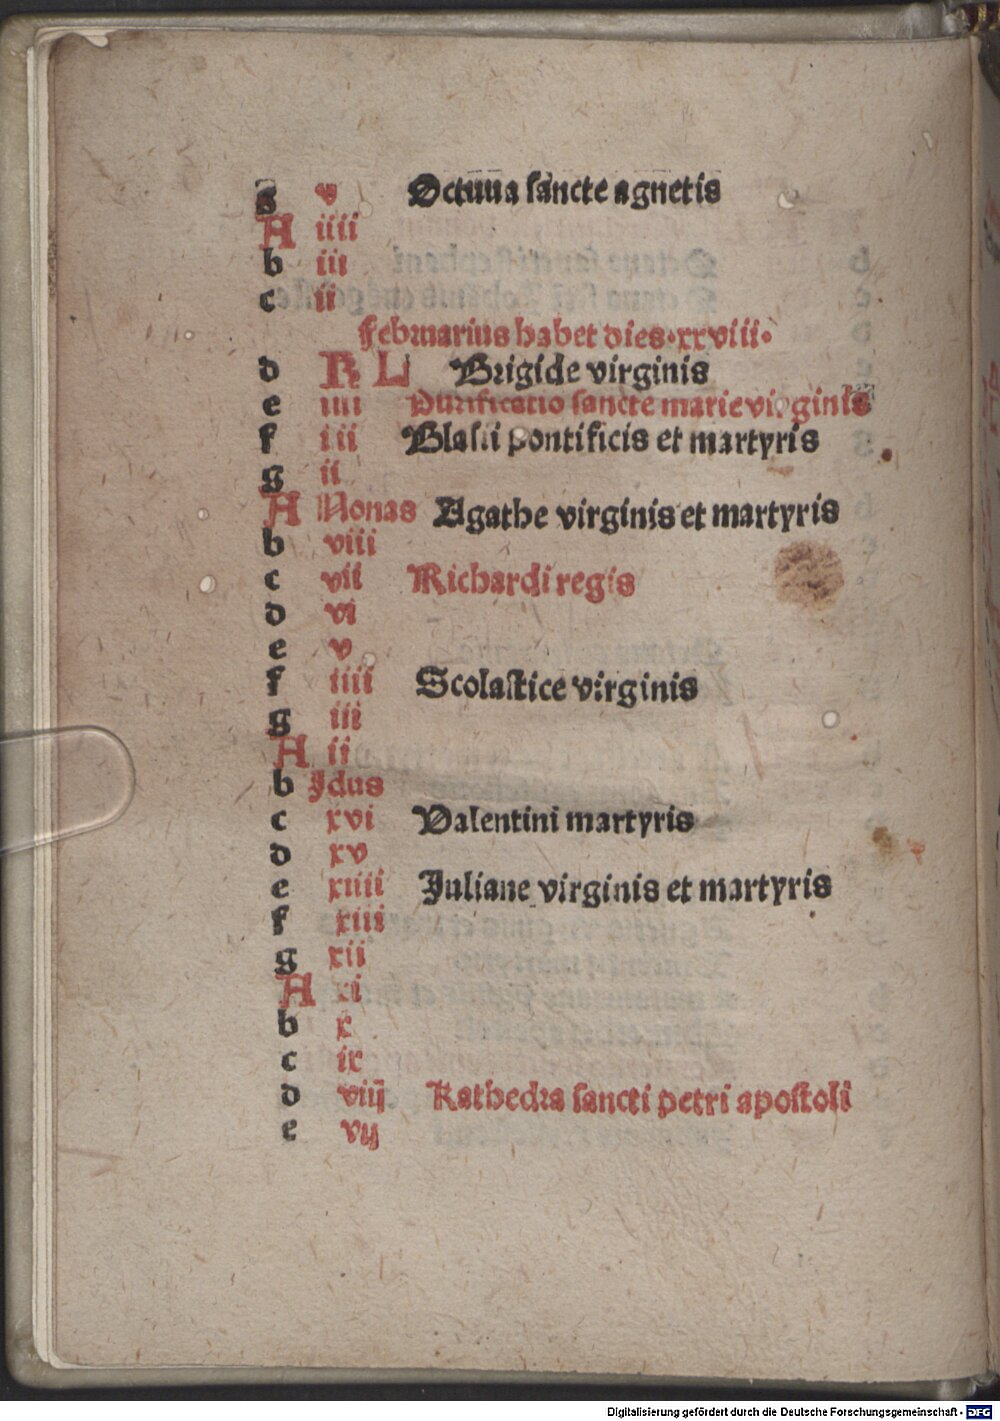 g v Octaua sancte agnetis
A iiii
b iii
c ii
Februarius habet dies·xxviii·
d KL Brigide virginis
e iiii Purificatio sancte marie virginis
f iii Blasii pontificis et martyris
g ii
A Nonas Agathe virginis et martyris
b viii
c vii Richardi regis
d vi
e v
f iiii Scolastice virginis
g iii
A ii
b Jdus
c xvi Valentini martyris
d xv
e xiiii Juliane virginis et martyris
f xiii
g xii
A xi
b x
c ix
d viij Kathedra sancti petri apostoli
e vij
Digitalisierung gefördert durch die Deutsche Forschungsgemeinschaft - DFG